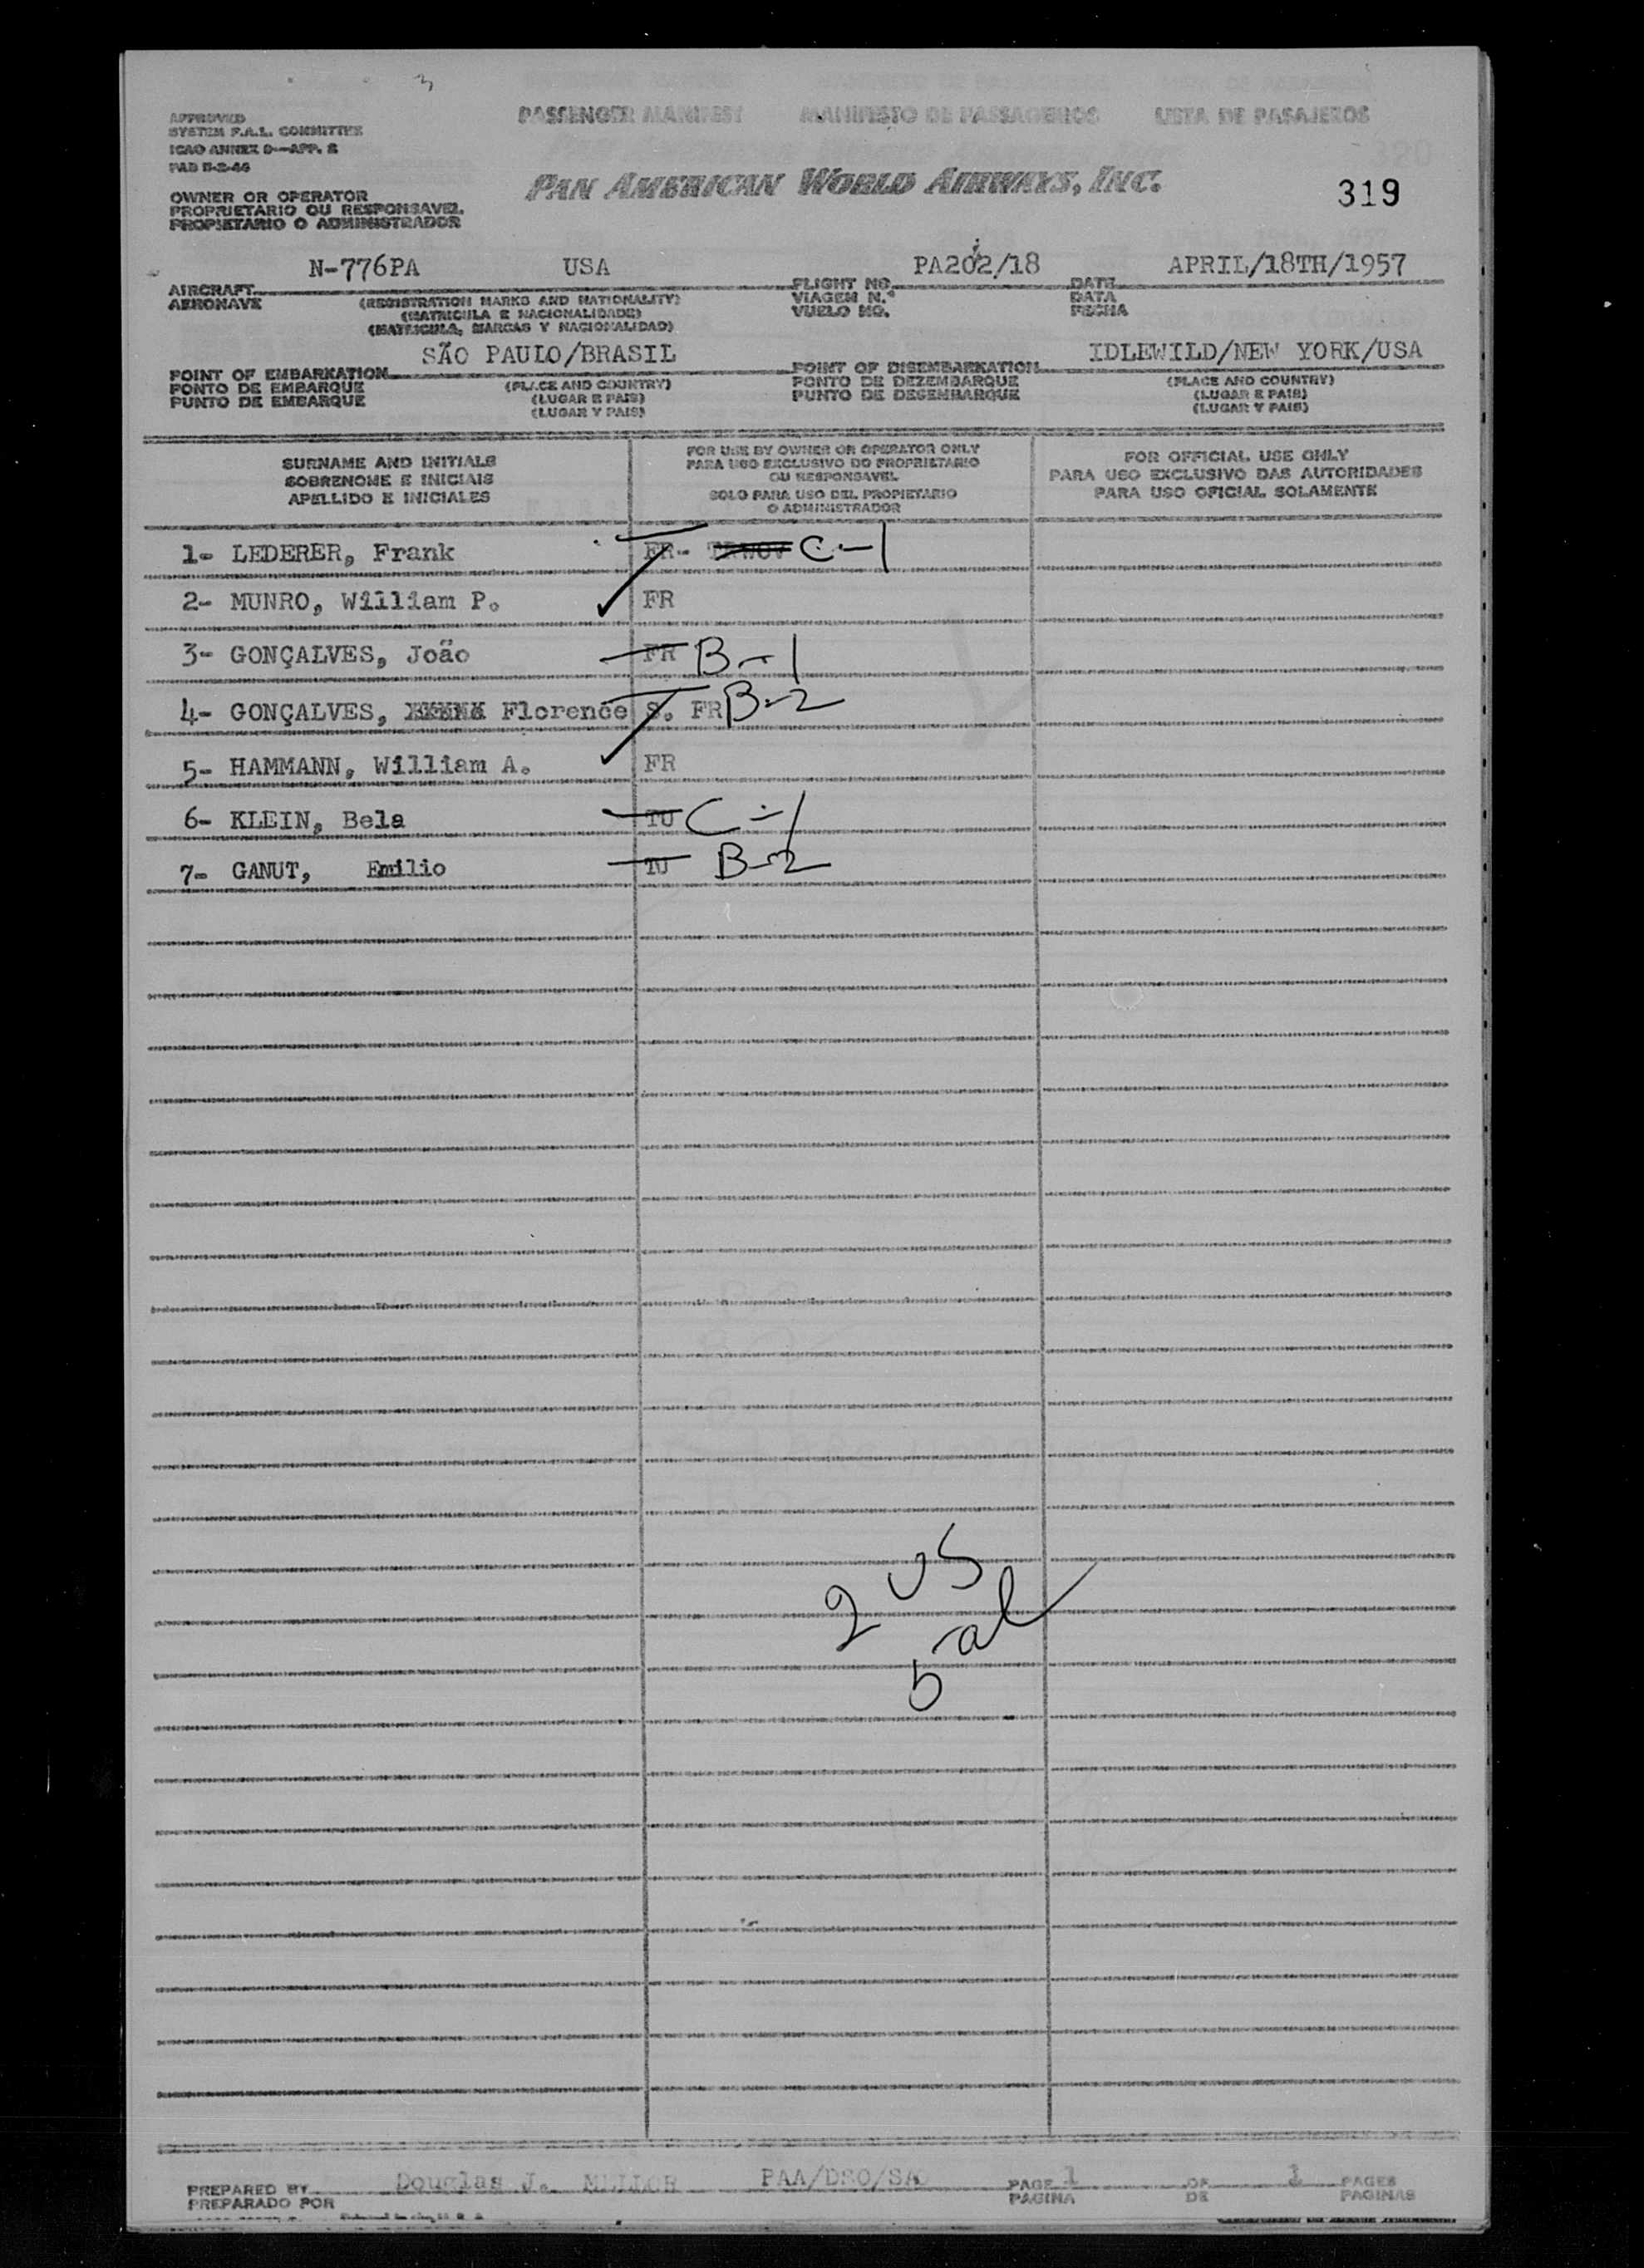 PASSENGER MANIFEST MANIFESTO DE PASSAGEIROS LISTA DE PASAJEROS
APPROVED
SYSTEM F.A.L. COMMITTEE
ICAO ANNEX 9—APP. 2
PAD
PAN AMERICAN WORLD AIRWAYS, INC.
319
OWNER OR OPERATOR
PROPRIETARIO OU RESPONSAVEL
PROPIETARIO O ADMINISTRADOR
N-776PA USA PA202/18 APRIL/18TH/1957
AIRCRAFT FLIGHT NO. DATE
AERONAVE (REGISTRATION MARKS AND NATIONALITY) VIAGEM N.º DATA
(MATRICULA E NACIONALIDADE) VUELO NO. FECHA
(MATRICULA, MARCAS Y NACIONALIDAD)
SÃO PAULO/BRASIL IDLEWILD/NEW YORK/USA
POINT OF EMBARKATION POINT OF DISEMBARKATION
PONTO DE EMBARQUE (PLACE AND COUNTRY) PONTO DE DEZEMBARQUE (PLACE AND COUNTRY)
PUNTO DE EMBARQUE (LUGAR E PAIS) PUNTO DE DESEMBARQUE (LUGAR E PAIS)
(LUGAR Y PAIS) (LUGAR Y PAIS)
SURNAME AND INITIALS
SOBRENOME E INICIAIS
APELLIDO E INICIALES
FOR USE BY OWNER OR OPERATOR ONLY
PARA USO EXCLUSIVO DO PROPRIETARIO
OU RESPONSAVEL
SOLO PARA USO DEL PROPIETARIO
O ADMINISTRADOR
FOR OFFICIAL USE ONLY
PARA USO EXCLUSIVO DAS AUTORIDADES
PARA USO OFICIAL SOLAMENTE
1- LEDERER, Frank FR- C-1
2- MUNRO, William P. FR
3- GONÇALVES, João FR B-1
4- GONÇALVES, Florence S. FR B-2
5- HAMMANN, William A. FR
6- KLEIN, Bela TU C-1
7- GANUT, Emilio TU B-2
2 US
5 al
PREPARED BY Douglas J. PAA/DSO/SAO PAGE 1 OF 1 PAGES
PREPARADO POR PAGINA DE PAGINAS